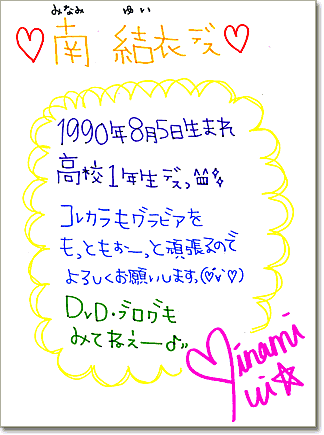 みなみ ゆい
♡南 結衣デス♡
1990年8月5日生まれ
高校1年生デスっ
コレカラもグラビアを
もっともぉーっと頑張るので
よろしくお願いします。(♡ν♡)
DVD・ブログも
みてねぇー♪"
Minami
ui☆